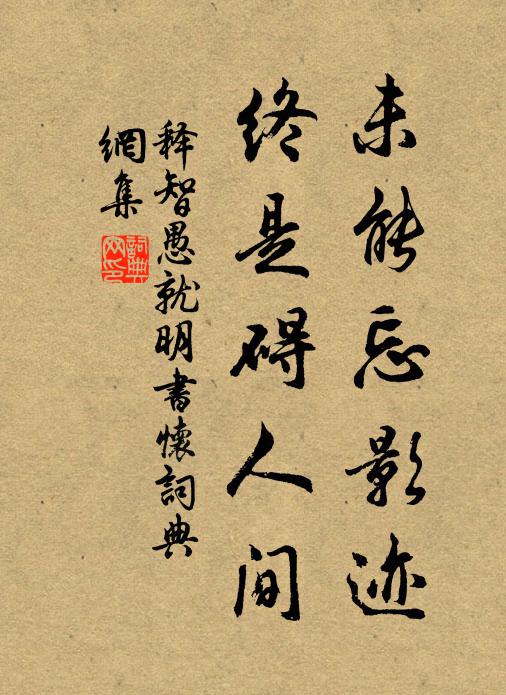 未能忘影迹
终是碍人间
释智愚就明书怀詞典
網集
詞典网印